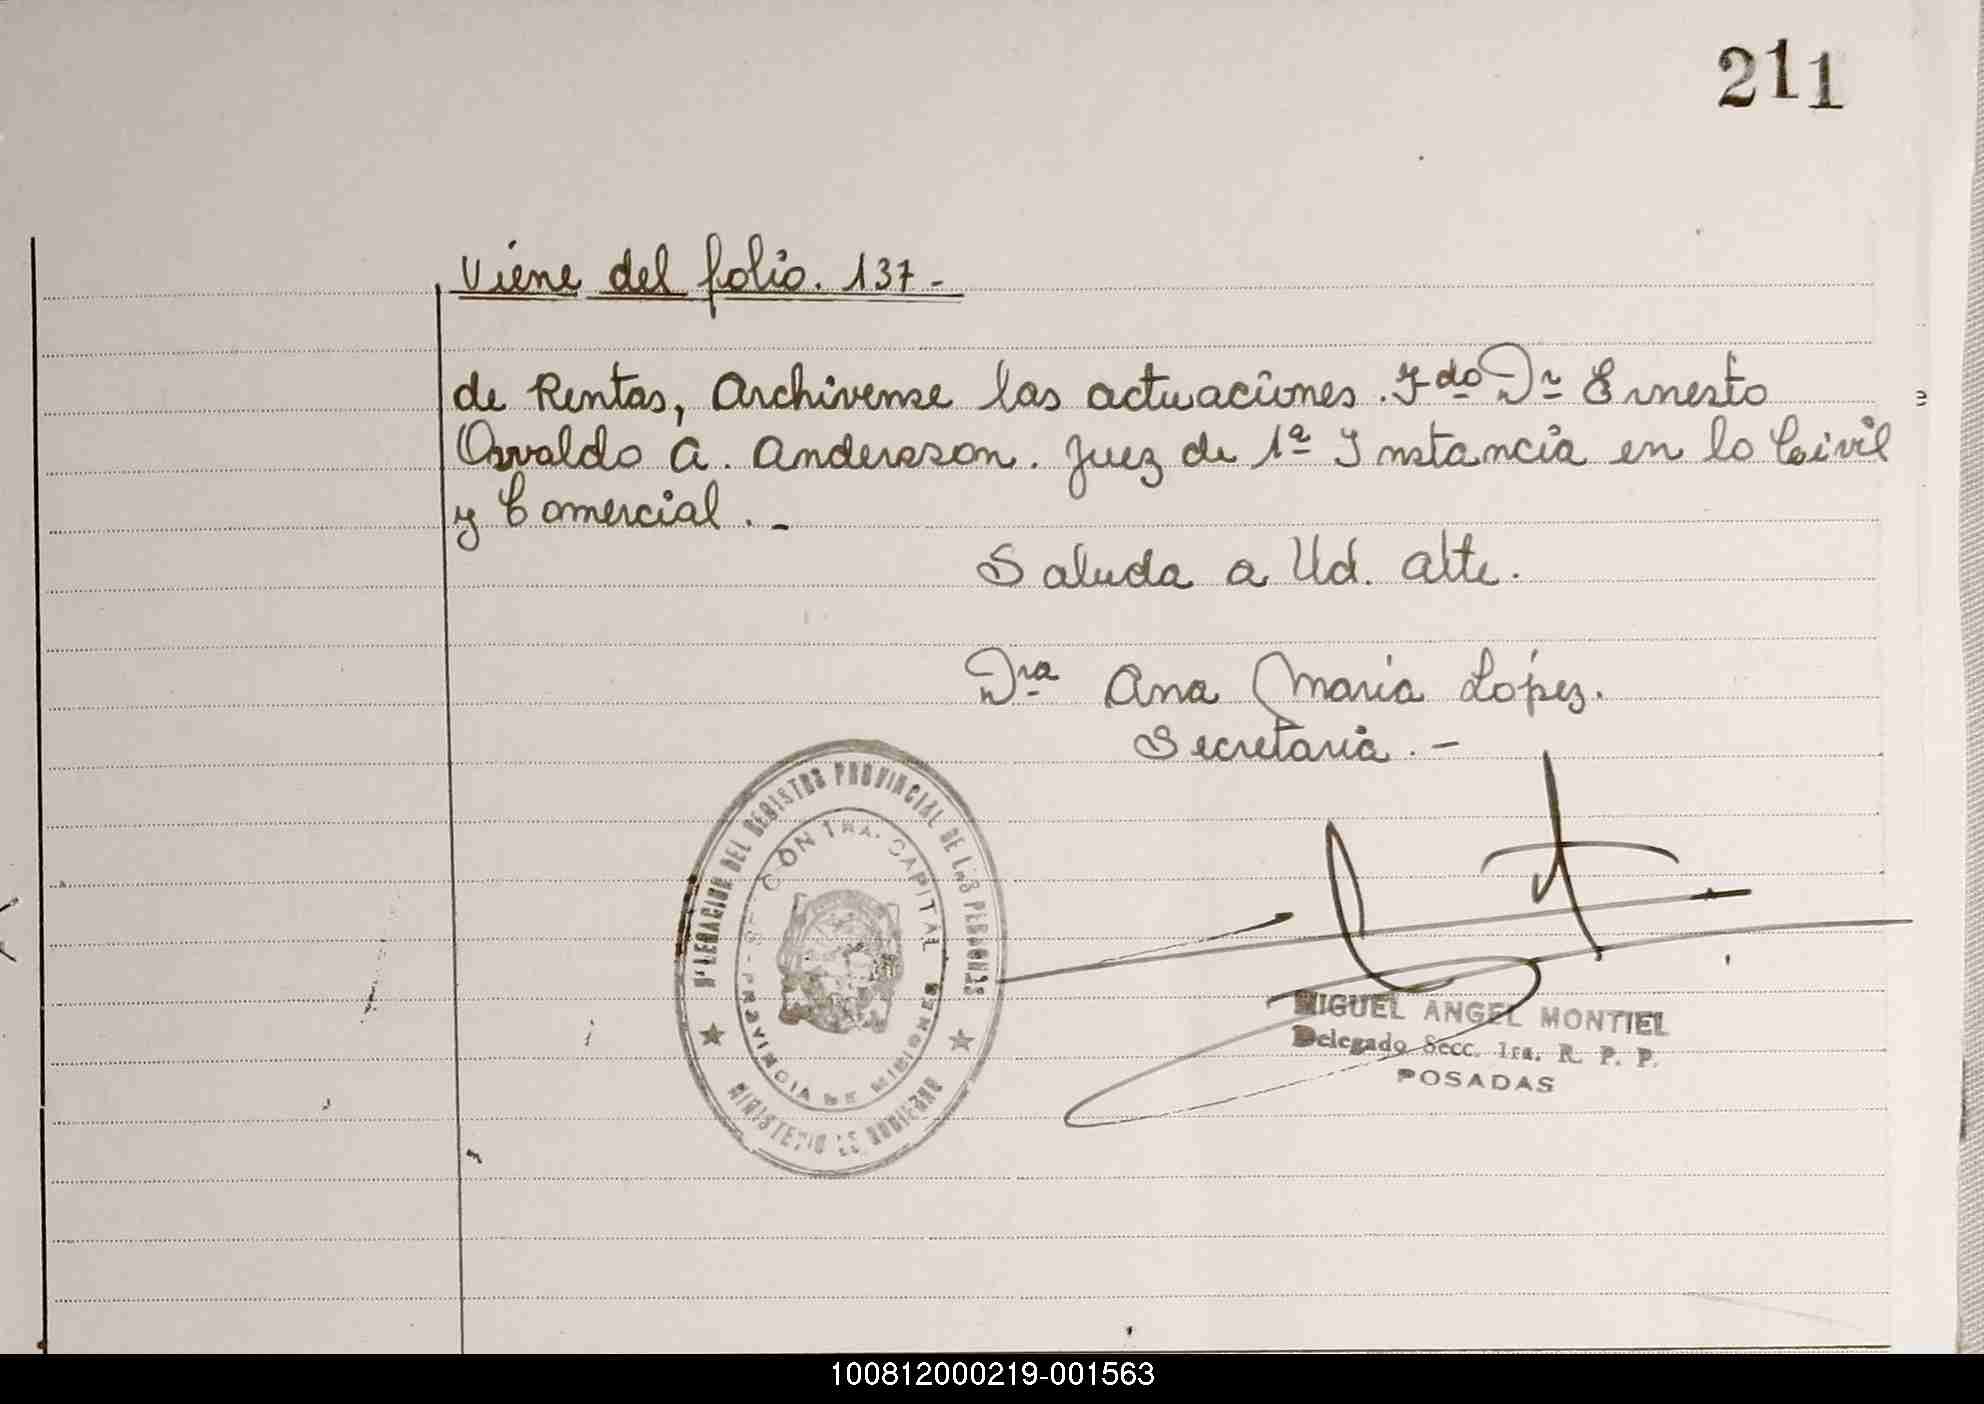 211
Viene del folio. 137-
de Rentas, Archivense las actuaciones. Fdo Dr Ernesto
Osvaldo A. Andersson. Juez de 1ª Instancia en lo Civil
y Comercial. -
Saluda a Ud. atte.
Dra Ana Maria López.
Secretaria. -
DELEGACION DEL REGISTRO PROVINCIAL DE LAS PERSONAS
CAPITAL
PROVINCIA DE MISIONES
MINISTERIO DE GOBIERNO
MIGUEL ANGEL MONTIEL
Delegado Secc. 1ra. R. P. P.
POSADAS
100812000219-001563